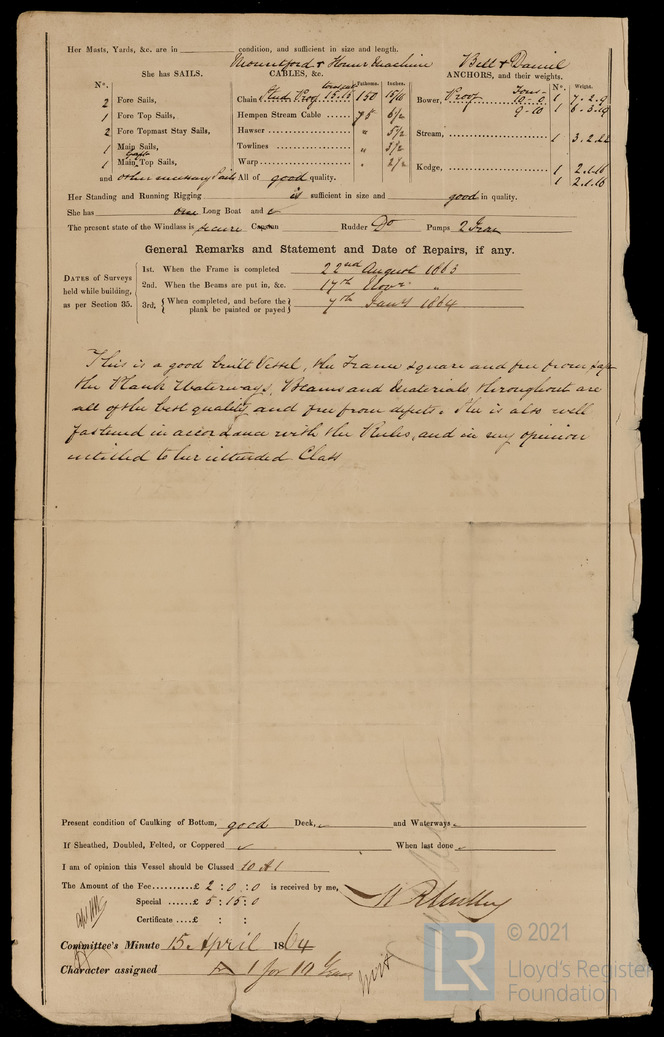 Her Masts, Yards, &c. are in condition, and sufficient in size and length.
Mountford + Home Machine Bell & Daniel
She has SAILS. CABLES, &c. Fathoms. Inches. ANCHORS, and their weights. Nº. Weight.
Nº.
2 Fore Sails, Chain Proof 15.10 150 15/16 Bower, Proof 10-0 1 7.2.9
1 Fore Top Sails, Hempen Stream Cable 75 6 1/2 9-10 1 6.3.19
2 Fore Topmast Stay Sails, Hawser " 5 1/2 Stream, 1 3.2.22
1 Main Sails, Towlines " 3 1/2
1 Main Gaff Top Sails, Warp " 2 1/2 Kedge, 1 2.1.16
and other necessary Sails All of good quality. 1 2.1.16
Her Standing and Running Rigging is sufficient in size and good in quality.
She has one Long Boat and
The present state of the Windlass is secure Capstan Rudder Do Pumps 2 Iron
General Remarks and Statement and Date of Repairs, if any.
DATES of Surveys held while building, as per Section 35.
1st. When the Frame is completed 22nd August 1863
2nd. When the Beams are put in, &c. 17th Novr "
3rd, { When completed, and before the plank be painted or payed } 7th Jany 1864
This is a good built Vessel, the Frame square and free from sap
the Plank Waterways, Beams and Materials throughout are
all of the best quality and free from defects. She is also well
fastened in accordance with the Rules, and in my opinion
entitled to her intended Class
Present condition of Caulking of Bottom, good Deck, and Waterways
If Sheathed, Doubled, Felted, or Coppered When last done
I am of opinion this Vessel should be Classed 10 A1
The Amount of the Fee..........£ 2 : 0 : 0 is received by me,
Special .....£ 5 : 15 : 0
Certificate ....£ : :
Committee's Minute 15 April 1864
Character assigned A 1 for 10 Years
© 2021
LR
Lloyd's Register
Foundation